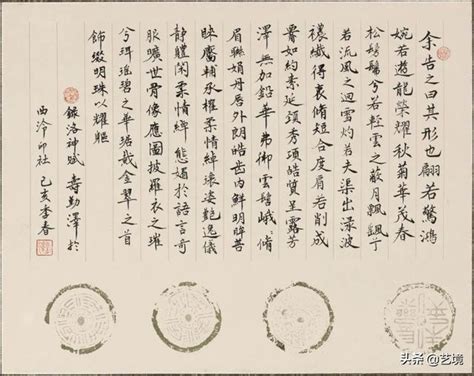 余告之曰其形也翩若驚鴻
婉若遊龍榮耀秋菊華茂春
松髣髴兮若輕雲之蔽月飄飖兮
若流風之迴雪灼若夫渠出淥波
襛纖得衷脩短合度肩若削成
如約素延頸秀項皓質呈露芳
澤無加鉛華弗御雲髻峨〻脩
眉聯娟丹唇外朗皓齒內鮮明眸善
睞靨輔承權柔情綽瓌姿艷逸儀
靜體閑柔情綽態媚於語言奇
服曠世骨像應圖披羅衣之璀
兮珥瑤碧之華琚戴金翠之首
飾綴明珠以耀軀
錄洛神賦 壽勤澤於
西泠印社 己亥季春
头条 @艺境